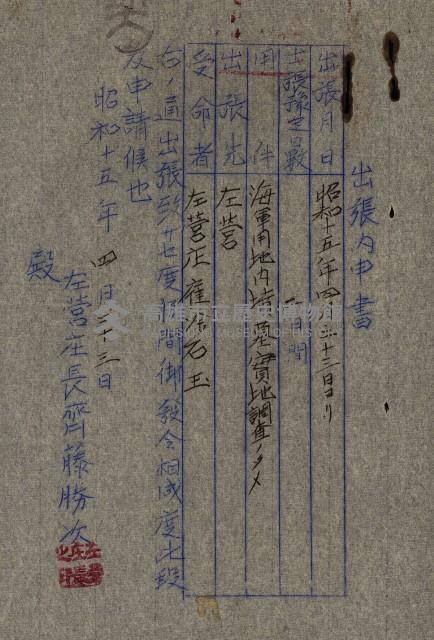 出張內申書
出張月日 昭和十五年四月二十三日ヨリ
出張豫定日數 一日間
用件 海軍用地內墳墓實地調査ノタメ
出張先 左營
受命者 左營庄雇 石玉
右ノ通出張致サセ度候間御發令相成度此段
及申請候也
昭和十五年四月二十三日
左營庄長齊藤勝次
殿
高雄市立歷史博物館
KAOHSIUNG MUSEUM OF HISTORY